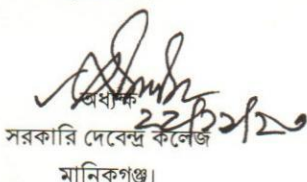 অধ্যক্ষ
সরকারি দেবেন্দ্র কলেজ
মানিকগঞ্জ।